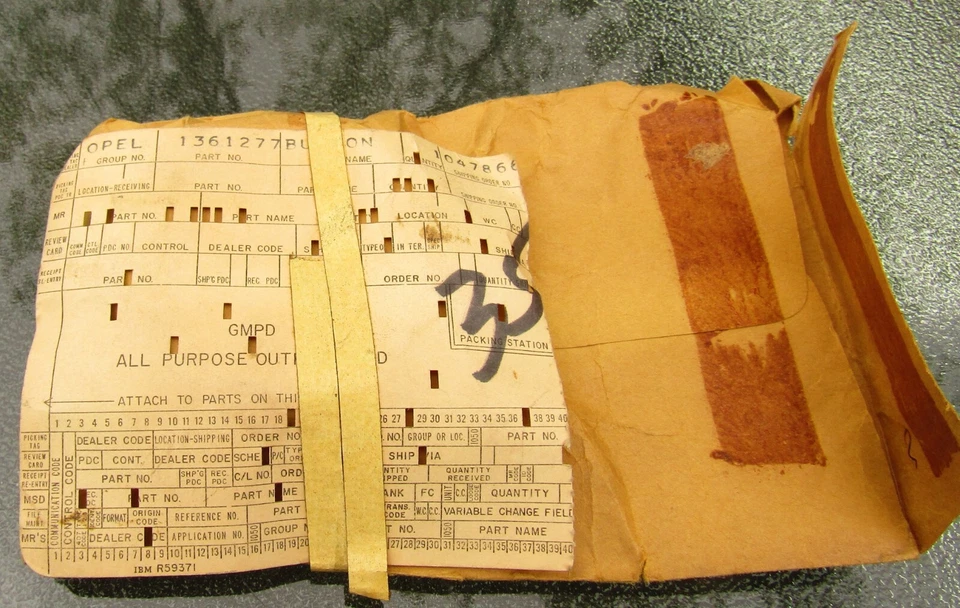 OPEL 1361277 BU ON 104786
GROUP NO. PART NO. NAME QUANTITY SHIPPING ORDER NO.
LOCATION-RECEIVING PART NO. PA QUANTITY SHIPPING ORDER NO.
MR PART NO. PART NAME LOCATION WC
REVIEW CARD COMM CODE CTL CODE PDC NO CONTROL DEALER CODE S TYPED IN TER. SHI
RECEIPT RE-ENTRY PART NO. SHP'G PDC REC PDC ORDER NO. QUANTITY
GMPD
PACKING STATION
ALL PURPOSE OUT D
ATTACH TO PARTS ON THI
1 2 3 4 5 6 7 8 9 10 11 12 13 14 15 16 17 18 26 27 29 30 31 32 33 34 35 36 38 39 40
PICKING TAG DEALER CODE LOCATION-SHIPPING ORDER NO. NO. GROUP OR LOC. 1050 PART NO.
REVIEW CARD PDC CONT. DEALER CODE SCHE P/C TYP SHIP VIA
RECEIPT RE-ENTRY PART NO. SHP'G PDC REC PDC C/L NO. ORD NTITY PPED QUANTITY RECEIVED
MSD PART NO. PART NAME ANK FC UNIT C.C. QUANTITY
FILE MAINT. FORMAT ORIGIN CODE REFERENCE NO. PART TRANS. CODE W.C. C.C. VARIABLE CHANGE FIELD
MR'S DEALER CODE APPLICATION NO. 1050 GROUP N T NO. 1050 PART NAME
COMMUNICATION CODE
CONTROL CODE
1 2 3 4 5 6 7 8 9 10 11 12 13 14 15 16 17 18 19 20 27 28 29 30 31 32 33 34 35 36 37 38 39 40
IBM R59371